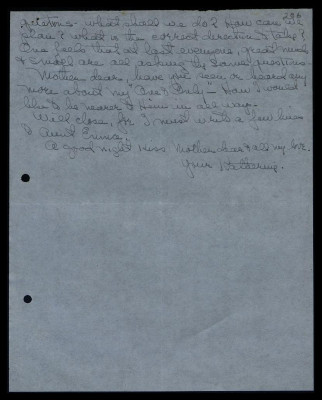 286
what shall we do? How can we
plan? What is the correct direction to take?
One feels that all last everyone, great minds
& small are all asking the same questions.
Mother dear, have you seen or heard any
more about my One's Baby - How I would
like to be nearer to him in one way.
Will close, for I must write a few lines
to Aunt Emma.
A good night kiss Mother dear & all my love.
Your Katharine.